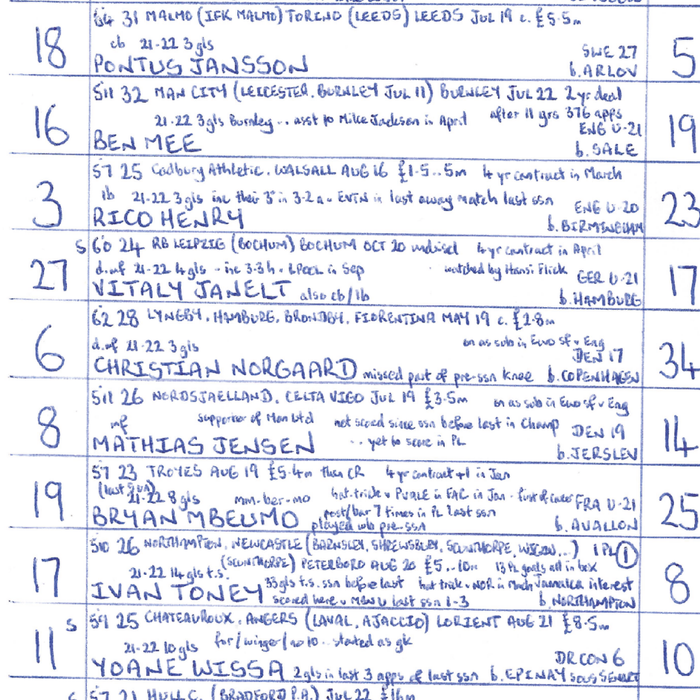 18 64 31 MALMO (IFK MALMO) TORINO (LEEDS) LEEDS JUL 19 c. £5.5m 5
cb 21-22 3 gls SWE 27
PONTUS JANSSON b. ARLOV
16 511 32 MAN CITY (LEICESTER, BURNLEY JUL 11) BURNLEY JUL 22 2 yr deal 19
21-22 3 gls Burnley .. asst to Mike Jackson in April after 11 yrs 376 apps ENG U-21
BEN MEE b. SALE
3 57 25 Cadbury Athletic, WALSALL AUG 16 £1.5..5m 4 yr contract in March 23
lb 21-22 3 gls inc their 3rd in 3-2 a v EVTN in last away match last ssn ENG U-20
RICO HENRY b. BIRMINGHAM
27 S 60 24 RB LEIPZIG (BOCHUM) BOCHUM OCT 20 undisci 4 yr contract in April 17
d.mf 21-22 4 gls - inc 3-3 h v LPOOL in Sep watched by Hansi Flick GER U-21
VITALY JANELT also cb/lb b. HAMBURG
6 62 28 LYNGBY, HAMBURG, BRONDBY, FIORENTINA MAY 19 c. £2.8m 34
d.mf 21-22 3 gls on as sub in Euro sf v Eng DEN 17
CHRISTIAN NORGAARD missed part of pre-ssn knee b. COPENHAGEN
8 511 26 NORDSJAELLAND, CELTA VIGO JUL 19 £3.5m on as sub in Euro sf v Eng 14
mf supporter of Man Utd not scored since ssn before last in Champ DEN 19
MATHIAS JENSEN .. yet to score in PL b. JERSLEV
19 57 23 TROYES AUG 19 £5.4m then CR 4 yr contract +1 in Jan 25
21-22 8 gls mm-ber-mo hat-trick v PVALE in FAC in Jan - first of career FRA U-21
BRYAN MBEUMO post/bar 7 times in PL last ssn b. AVALLON
played wb pre-ssn
17 510 26 NORTHAMPTON, NEWCASTLE (BARNSLEY, SHREWSBURY, SCUNTHORPE, WIGAN..) 1 PL 1 8
(SCUNTHORPE) PETERBORO AUG 20 £5..10m 13 PL goals all in box
21-22 14 gls t.s. 33 gls t.s. ssn before last hat trick v NOR in March Jamaica interest
IVAN TONEY scored here v MANU last ssn 1-3 b. NORTHAMPTON
11 S 59 25 CHATEAUROUX, ANGERS (LAVAL, AJACCIO) LORIENT AUG 21 £8.5m 10
21-22 10 gls for/winger/no 10 .. started as gk DR CON 6
YOANE WISSA 2 gls in last 3 apps of last ssn b. EPINAY SOUS SENART
57 21 HULL C. (BRADFORD P.A.) JUL 22 £16m